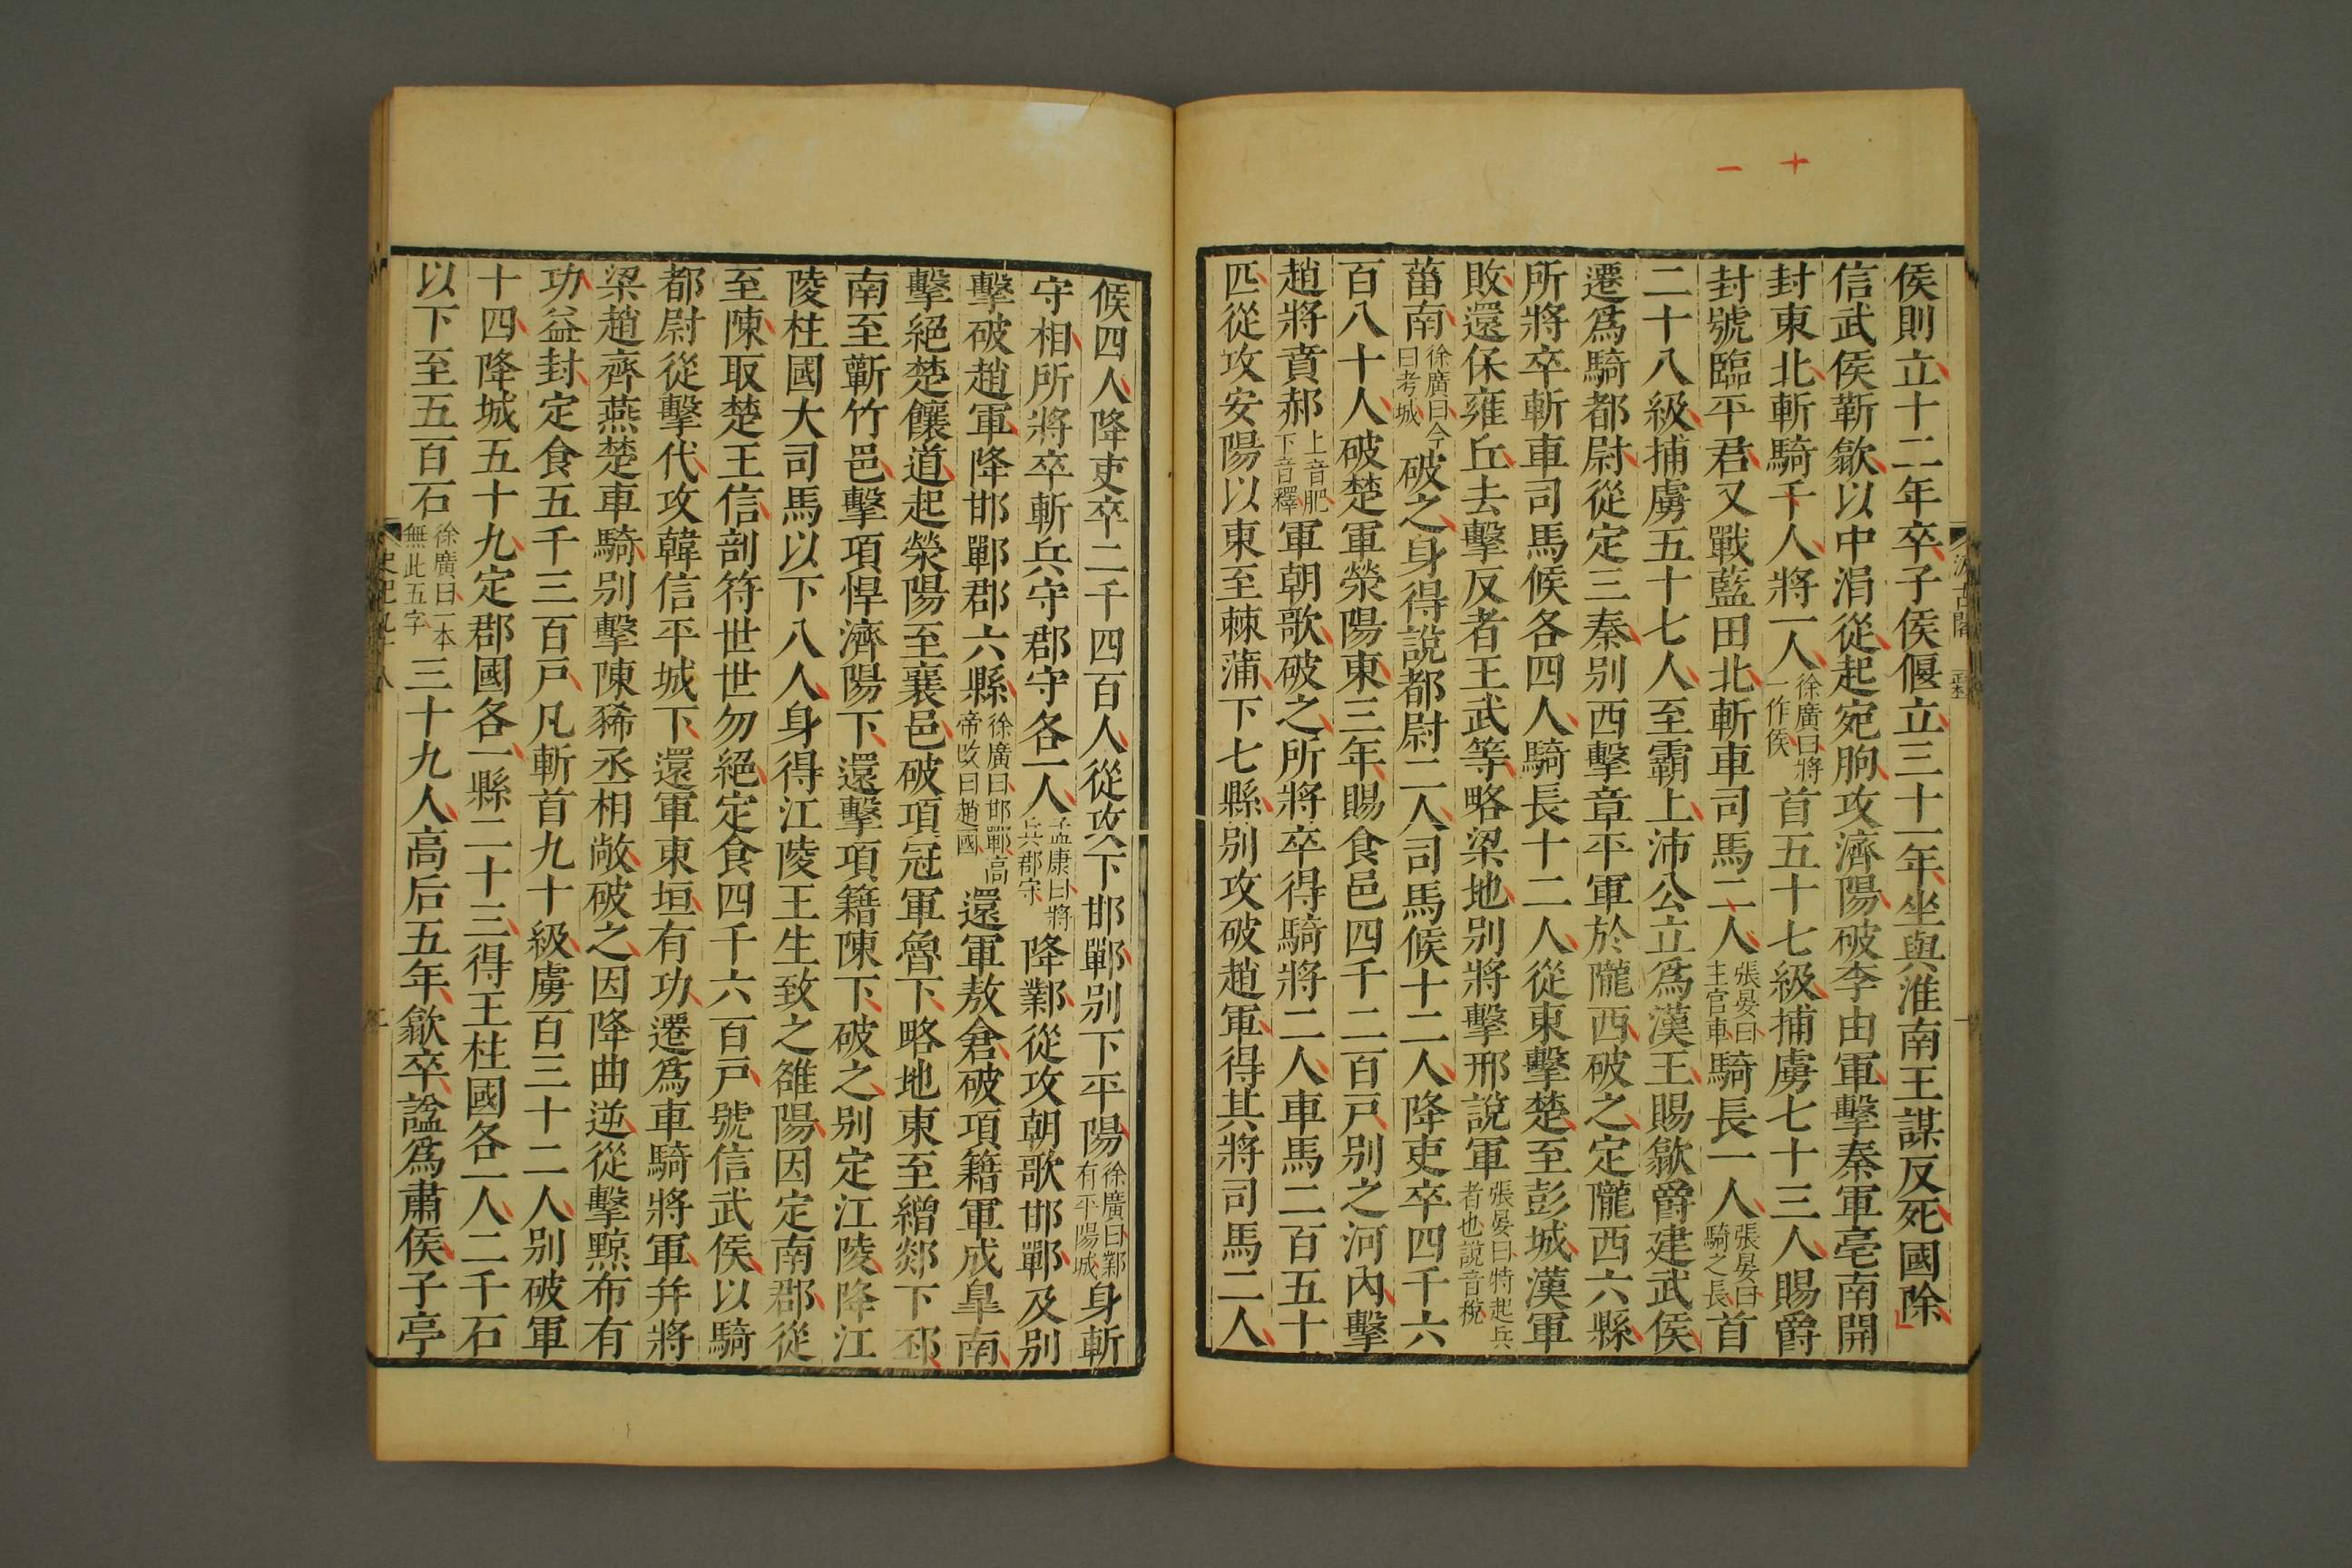 十一
侯則立十二年卒子侯偃立三十一年坐與淮南王謀反死國除
信武侯靳歙以中涓從起宛朐攻濟陽破李由軍擊秦軍亳南開
封東北斬騎千人將一人徐廣曰將一作侯首五十七級捕虜七十三人賜爵
封號臨平君又戰藍田北斬車司馬二人張晏曰主官車騎長一人張晏曰騎之長首
二十八級捕虜五十七人至霸上沛公立爲漢王賜歙爵建武侯
遷爲騎都尉從定三秦别西擊章平軍於隴西破之定隴西六縣
所將卒斬車司馬候各四人騎長十二人從東擊楚至彭城漢軍
敗還保雍丘去擊反者王武等略梁地别將擊邢說軍張晏曰特起兵者也說音稅
菑南徐廣曰今曰考城破之身得說都尉二人司馬候十二人降吏卒四千六
百八十人破楚軍滎陽東三年賜食邑四千二百戸别之河內擊
趙將賁郝上音肥下音釋軍朝歌破之所將卒得騎將二人車馬二百五十
匹從攻安陽以東至棘蒲下七縣别攻破趙軍得其將司馬二人
候四人降吏卒二千四百人從攻下邯鄲别下平陽徐廣曰鄴有平陽城身斬
守相所將卒斬兵守郡守各一人孟康曰將兵郡守降鄴從攻朝歌邯鄲及别
擊破趙軍降邯鄲郡六縣徐廣曰邯鄲高帝改曰趙國還軍敖倉破項籍軍成臯南
擊絕楚饟道起滎陽至襄邑破項冠軍魯下略地東至繒郯下邳
南至蘄竹邑擊項悍濟陽下還擊項籍陳下破之别定江陵降江
陵柱國大司馬以下八人身得江陵王生致之雒陽因定南郡從
至陳取楚王信剖符世世勿絕定食四千六百戸號信武侯以騎
都尉從擊代攻韓信平城下還軍東垣有功遷爲車騎將軍并將
梁趙齊燕楚車騎别擊陳豨丞相敞破之因降曲逆從擊黥布有
功益封定食五千三百戸凡斬首九十級虜百三十二人别破軍
十四降城五十九定郡國各一縣二十三得王柱國各一人二千石
以下至五百石徐廣曰一本無此五字三十九人高后五年歙卒謚爲肅侯子亭